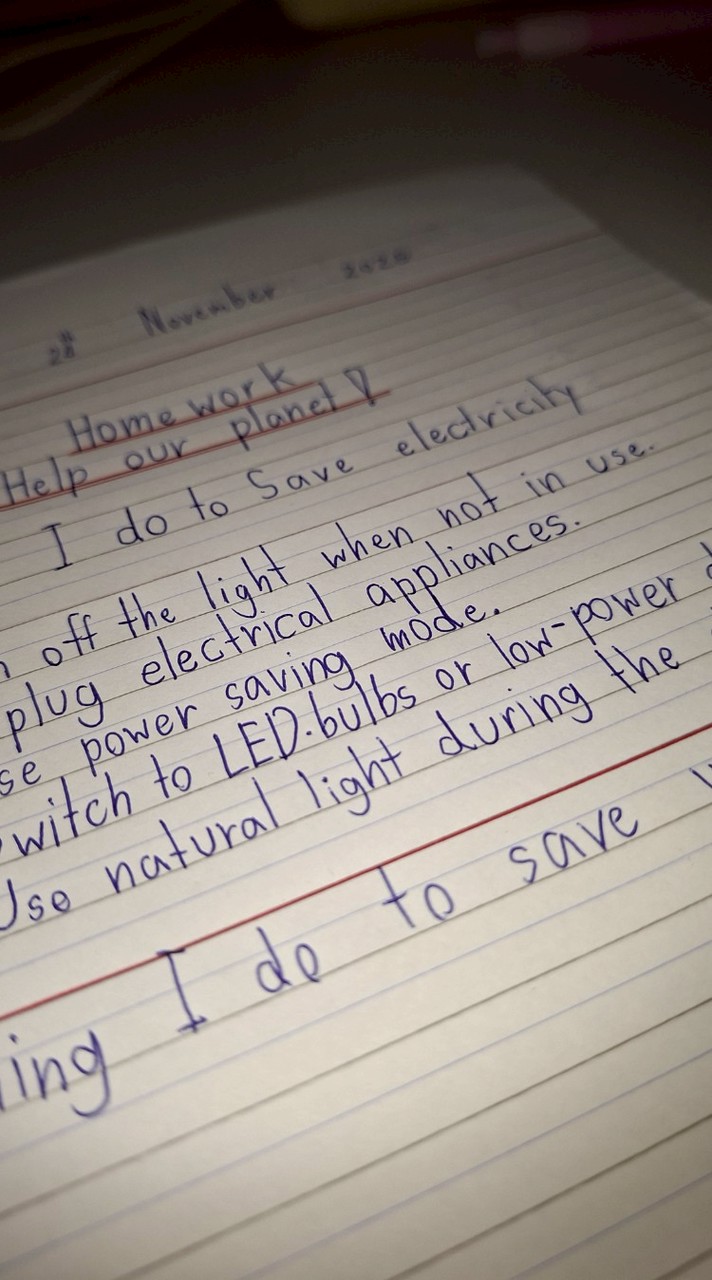 28th November 2020
Home work
Help our planet!
I do to Save electricity
off the light when not in use.
plug electrical appliances.
se power saving mode.
witch to LED.bulbs or low-power
Use natural light during the
ing I do to save